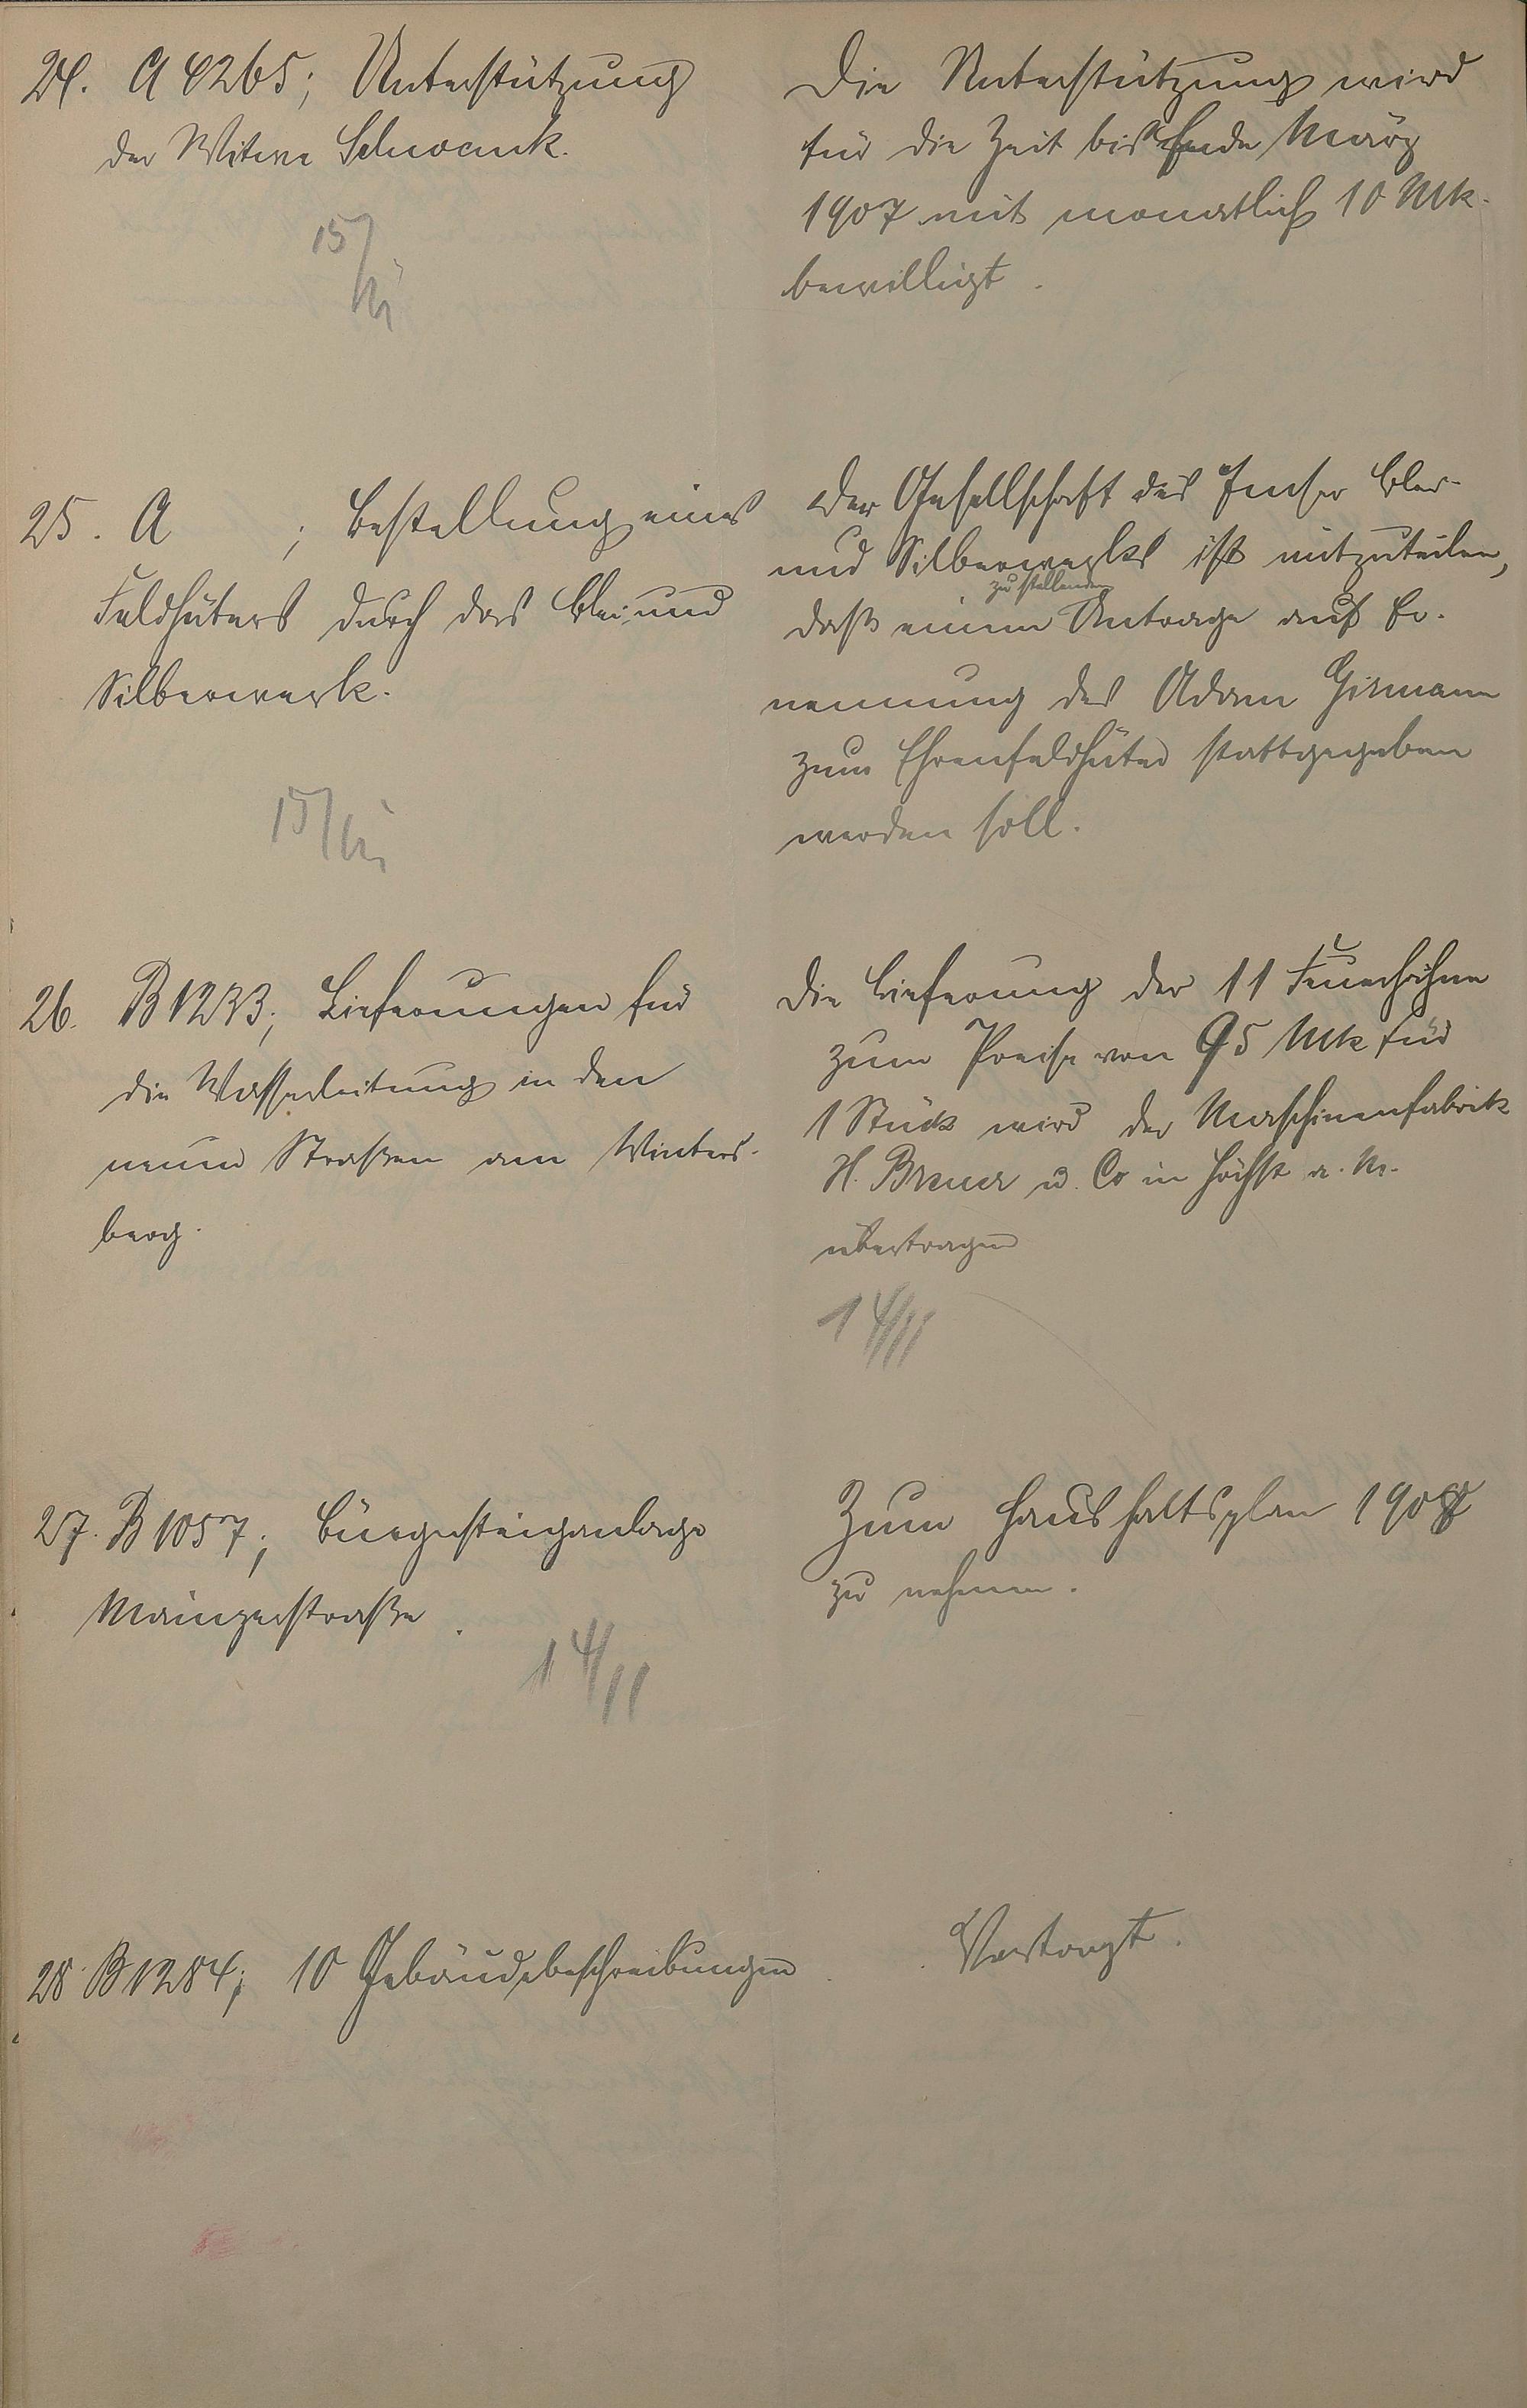 24. A 4265; Unterstützung
der Witwe
15/11
Die Unterstützung wird
für die Zeit bis Ende März
1907 mit monatlich 10 Mk.
bewilligt.
25. A ; Bestellung eines
Feldhüters durch das Blei- und
Silberwerk.
15/11
Der Gesellschaft des Emser Blei-
und Silberwerks ist mitzuteilen,
zu stellenden
daß einem Antrage auf Er-
nennung des Adam Gismann
zum Ehrenfeldhüter stattgegeben
werden soll.
26. B 1233; Lieferungen für
die Wasserleitung in den
neuen Straßen am Winters-
berg.
Die Lieferung der 11
zum Preise von 95 Mk für
1 Stück wird der Maschinenfabrik
H. Breuer u. Co in Höchst a. M.
übertragen
14/11
27. B 1057; Bürgersteiganlage
Mainzerstraße.
14/11
Zum Haushaltsplan
zu nehmen.
28. B 1284; 10 Gebäudebeschreibungen
Vertagt.